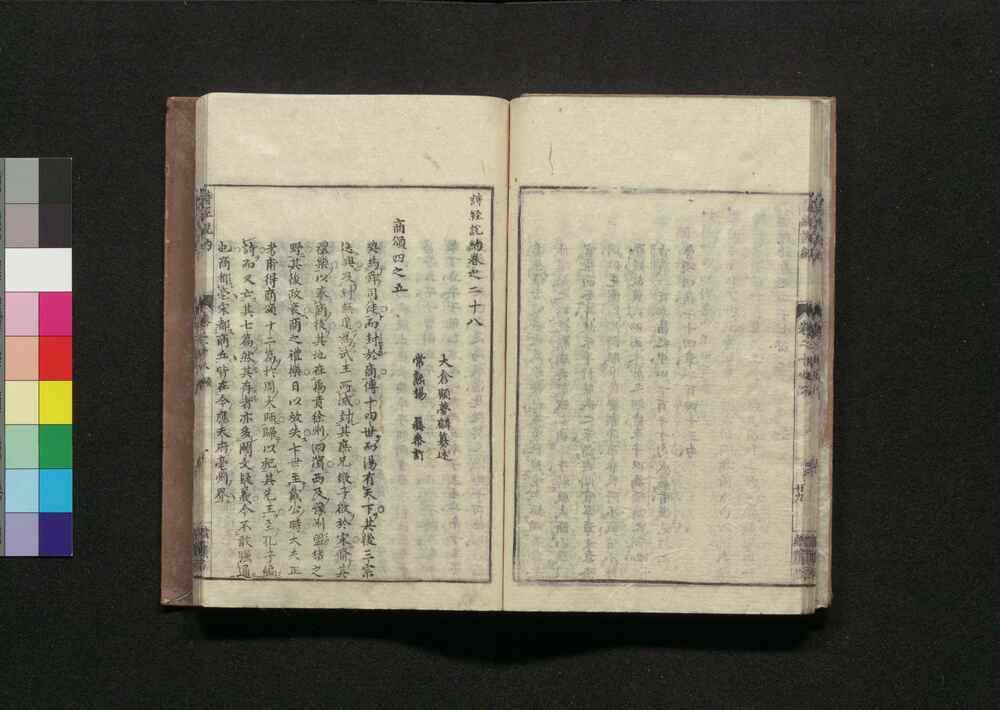 詩經說約卷之二十八
太倉顧夢麟纂述
常熟楊 彝參訂
商頌四之五
契爲舜司徒而封於商傳十四世而湯有天下其後三宗
迭興及紂無道爲武王所滅封其庶兄微子啟於宋脩其
禮樂以奉商後其地在禹貢徐州泗濱西及豫州盟豬之
野其後政衰商之禮樂日以放失七世至戴公時大夫正
考甫得商頌十二篇於周太師歸以祀其先王至孔子編
詩而又亡其七篇然其存者亦多闕文疑義今不敢强通
也商都亳宋都商丘皆在今應天府亳州界